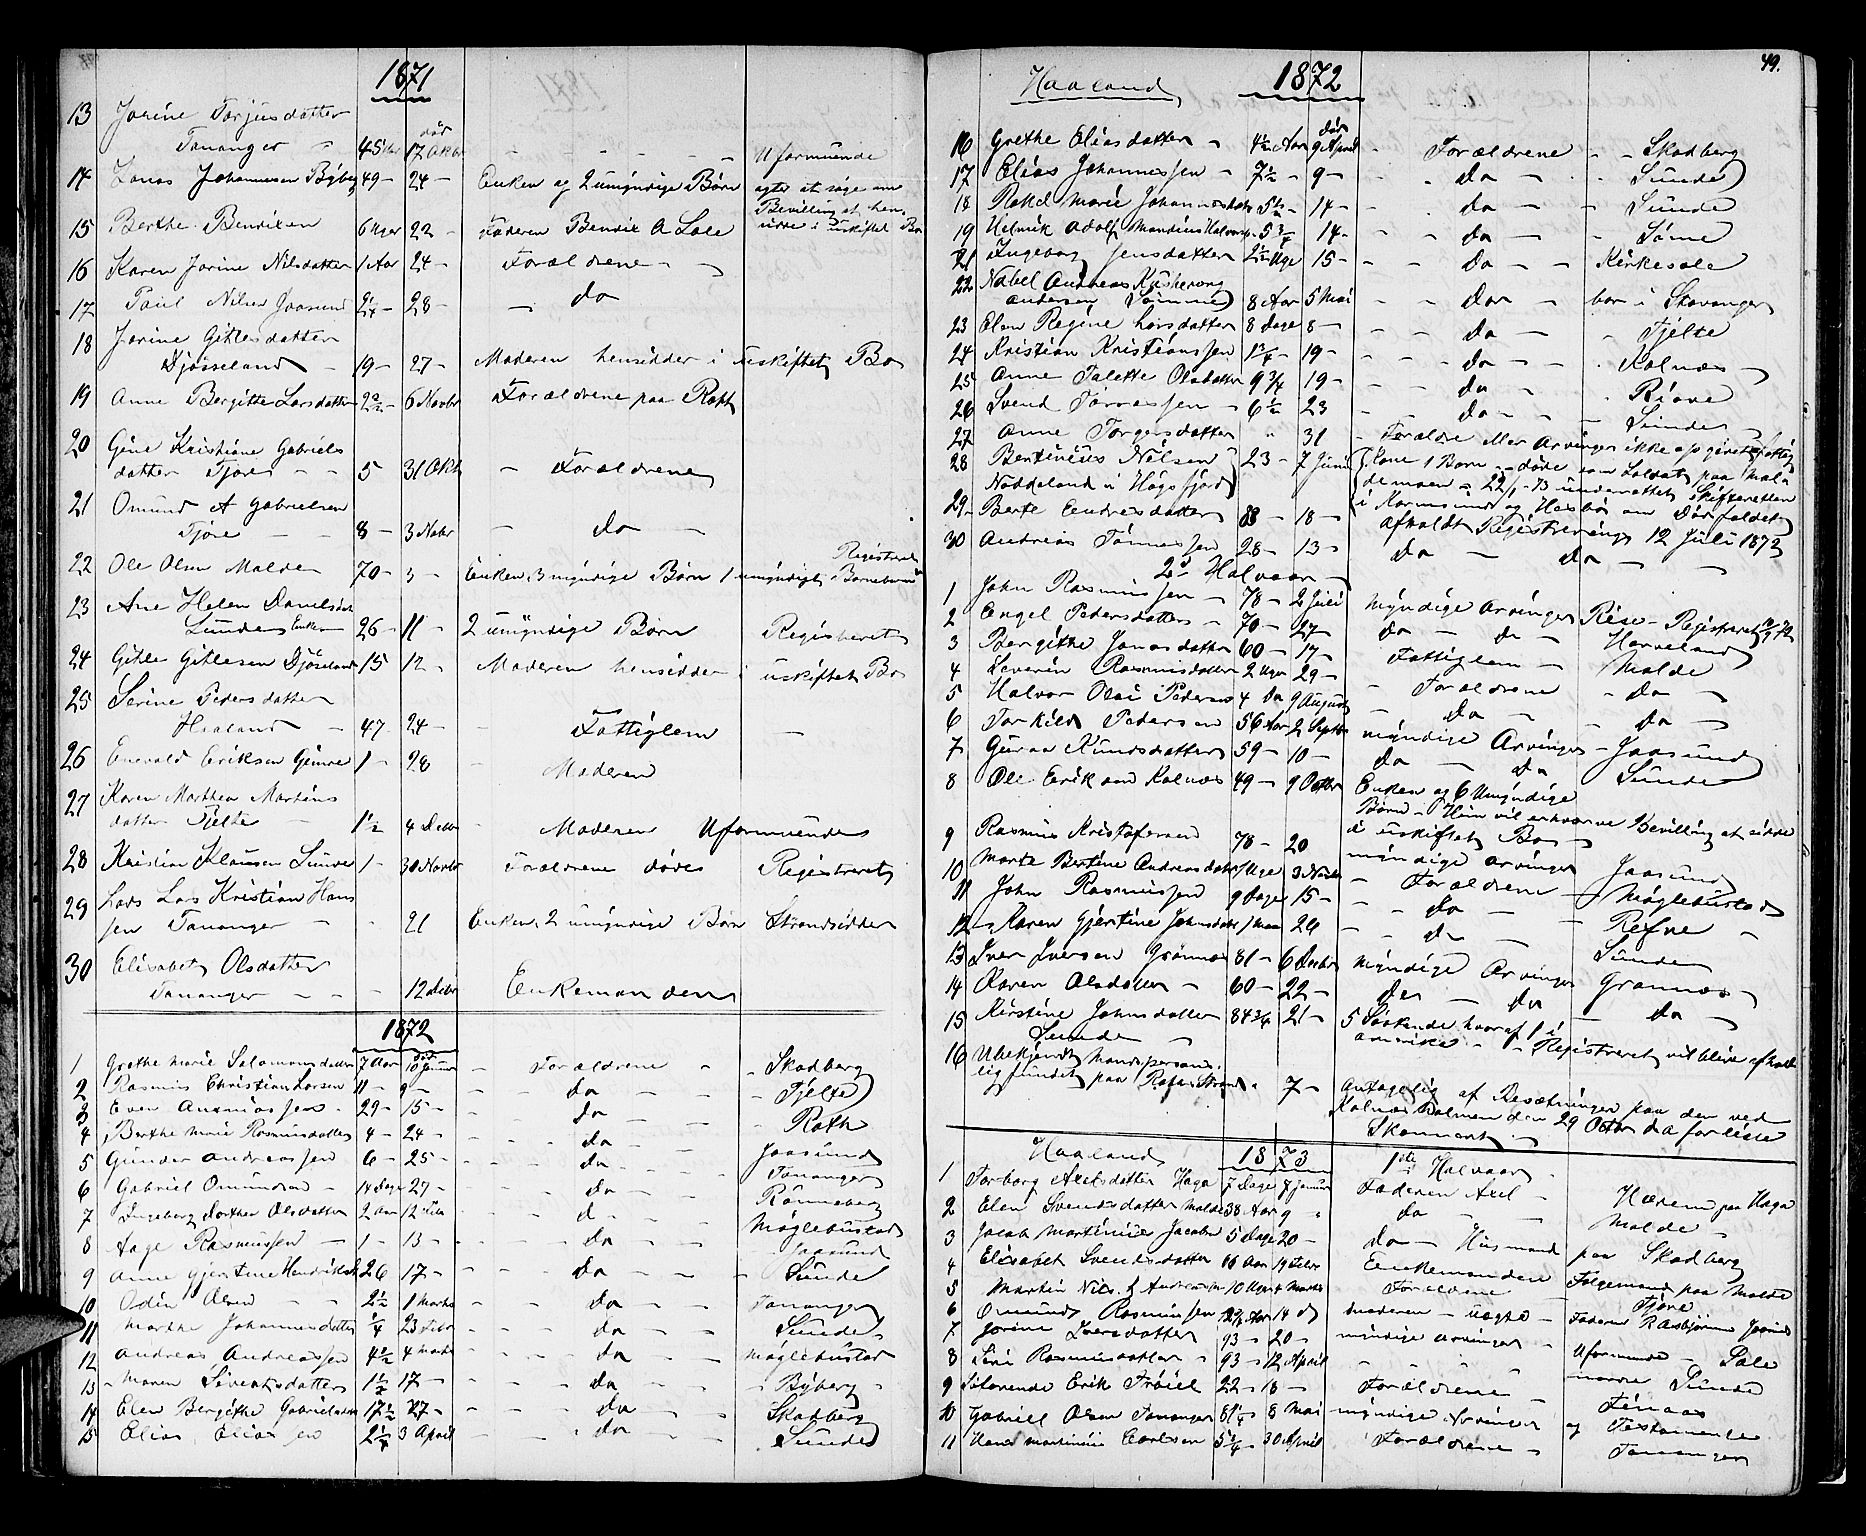 1871
13 Jorine Torjusdatter
Tananger - 45 Aar død 17 Oktbr - - - - - Uformuende
14 Jonas Johannesen Byberg 49 - 24 - Enken og 2 umyndige Børn agter at søge om
Bevilling at hen-
15 Berthe Bendixen 6 Uger 22 - Faderen Bendix A Sole sidde i uskiftet Bo
16 Karen Jorine Nilsdatter 1 Aar 24 - Forældrene - -
17 Paul Nilsen Jaasund 2¼ - 28 - - do
18 Jorine Gitlesdatter
Djøsseland - 19 - 27 - Moderen hensidder i uskiftet Bo
19 Anne Bergitte Larsdatter 2½ - 6 Novbr Forældrene paa Roth
20 Gine Kristiane Gabriels
datter Tjore - - 5 31 Okt - Forældrene
21 Omund A Gabrielsen
Tjore - - 8 - 3 Nobr - do -
22 Ole Olsen Malde 70 - 3 - Enken, 3 myndige Børn 1 umyndigt Barnebarn Registreret
23 Ane Helen Danielsdat
Sunde Enke 26 - 11 - 2 umyndige Børn Registreret
24 Gitle Gitlesen Djøseland 15 12 - Moderen hensidder i uskiftet Bo
25 Serine Pedersdatter
Haaland - 47 24 - - Fattiglem -
26 Enevald Eriksen Gimre 1 - 28 - Moderen
27 Karen Marthea Martins
datter Tjelte - 1½ 4 Debr - Moderen Uformuende
28 Kristine Klausen Sunde 1 - 30 Novbr Forældrene døde Registreret
29 Lars Kristian Hans
sen Tananger - - 21 Enken, 2 umyndige Børn Strandsidder
30 Elisabet Olsdatter
Tananger - - - 12 Debr Enkemanden
1872
1 Grethe Marie Salomonsdatter 7 Aar død 10 Januar - Forældrene - - Skadberg
2 Rasmus Christian Larsen 11 - 9 - - - do - - Tjelte
3 Even Asmiassen - 29 - 15 - - - do - - Roth
4 Berthe Marie Rasmusdatter 4 - 24 - - - do -
5 Gunder Andreassen 6 - 25 - - - do - - Jaasund
6 Gabriel Omundsen - 14 Dage 27 - - - do - - Tananger
7 Ingeborg Dorthea Olsdatter 2 Aar 12 Feb - - d - - - Rønneberg
8 Aage Rasmussen - 1 - 13 - - - do - - Møglebustad
9 Anne Gjertine Henriksdt 26 17 - - - do - - Jaasund
10 Odin Olsen - - 2½ 1 Marts - - do - - Sunde
11 Marthe Johannesdatter ¼ 23 Febr - - do - - Tananger
12 Andreas Andreassen 4½ 4 Marts - - do - - Sunde
13 Maren Sivertsdatter 1½ 17 - - - do - - Møglebustad
14 Elen Bergithe Gabrielsdtr 17½ 27 - - - do - - Byberg
15 Elias Eliassen 2¼ 3 April - - do - - Skadberg
Sunde
Haaland 1872 49.
16 Grethe Eliasdatter - 4½ Aar død 9 April - Forældrene - - Skadberg
17 Elias Johannessen - 7½ - 9 - - do - - Sunde
18 Rakel Marie Johannesdatr 5½ - 14 - - do - - Sunde
19 Helmik Adolf Mandius Halvors 5¾ 14 - - do - - Sømme
21 Ingeborg Jensdatter 2½ Uge 15 - - - do - - Kirkesole
22 Nabel Andreas
Andersen Sømme 8 Aar 5 Mai - - do - bor i Stavanger
23 Elen Regine Larsdatter 8 Dage 8 - - - do - - Tjelte
24 Kristian Kristianssen 1¾ - 19 - - - do - - Kolnæs -
25 Anne Talette Olsdatter 9¾ 19 - - - do - - Risne
26 Svend Tønnessen - 6½ 23 - - do - - Sunde
27 Anne Torgersdatter " 31 - Forældre eller Arvinger ikke opgivet, fattig
28 Bertinius Nilsen 23 - 7 Juni Kone 1 Barn - døde som Soldat paa Mal-
Nøddeland i Høgsfjord demoen - 22/1-73 underrettet Skifteretten
i Karmsund og Hesbø om Dødsfaldet
29 - Berte Endresdatter 83 - 18 - Afholdt Registrering 12 Juli 1872
30 Andreas Tønnessen 28 - 13 - do - do - -
2d Halvaar -
1 John Rasmussen - 78 - 2 Juli Myndige Arvinger Risa - Registreret
2 Engel Pedersdatter - 70 - 27 - do - do - Harveland
3 Bergithe Jonasdatter 60 - 17 - Fattiglem - Malde
4 Severin Rasmusdatter 2 Uger 29 - - Forældrene - do -
5 Halvor Olai Pedersen 4 do 9 August - do - - do -
6 Torkild Pedersen 56 Aar 2 Septbr myndige Arvinger - Jaasund
7 Guroa Knudsdatter 59 - 10 - do - do Sunde
8 Ole Eriksen Kolnæs 49 - 9 Octbr Enken og 6 Umyndige
Børn - Hun vil erhverve Bevilling at sidde
i uskiftet Bo -
9 Rasmus Kristofersen 78 - 20 myndige Arvinger Jaasund
10 Marte Bertine Andreasdatr 1 Uge 3 Novbr - Forældrene - Møglebustad
11 John Rasmussen 9 Dage 15 - - - do - - Refne -
12 - Karen Gjertine Johnsdatr 1 Maan 26 - - do - Sunde
13 Iver Iversen Grønnes 81 - 6 Decbr myndige Arvinger Grannæs -
14 Karen Olsdatter - 60 - 22 - do - do - do -
15 Kirstine Johnsdatter 84 3/4 21 - 5 Søskende hvoraf 1 i
Sunde - Amerika - - Registreret vil blive afholdt
16 Ubekjendt Mandsperson
lig fundet paa Roths Strand " 7 - Antagelig af Besætningen paa den ved
Kolnæs Holmen den 29 Octbr d. A. forliste
Skonnert -
Haaland 1873 1ste Halvaar -
1 Torborg Axelsdatter Haga 7 Dage 7 Januar Faderen Axel - Hæren paa Haga
2 Elen Svendsdatter Malde 38 Aar 9 - do - - Malde -
3 Jacob Martinius Jacobs 5 Dage 20 - do - Husmand paa Skadberg
4 Elisabet Svendsdatter 66 Aar 19 Febr Enkemanden Folgemand paa Malde
5 Martin Nics. f. Andreas 10 Uger 4 Marts Forældrene Tjore
6 Omund Rasmussen 22½ Aar 14 do Moderen - Faderen R Asbjørnsen Jaasund
7 Jorine Iversdatter 93 - 20 - myndige Arvinger
8 Siri Rasmusdatter - 93 - 12 April - - - Uformuende - Sole
9 Søløvende Erik Trøiel 22 - 18 - Forældrene - Sunde
10 Gabriel Olsen Tananger 81¼ 8 Mai myndige Arvinger og Testamente
11 Hans Martinius Carlsen 5¾ 30 April Forældrene - Tananger